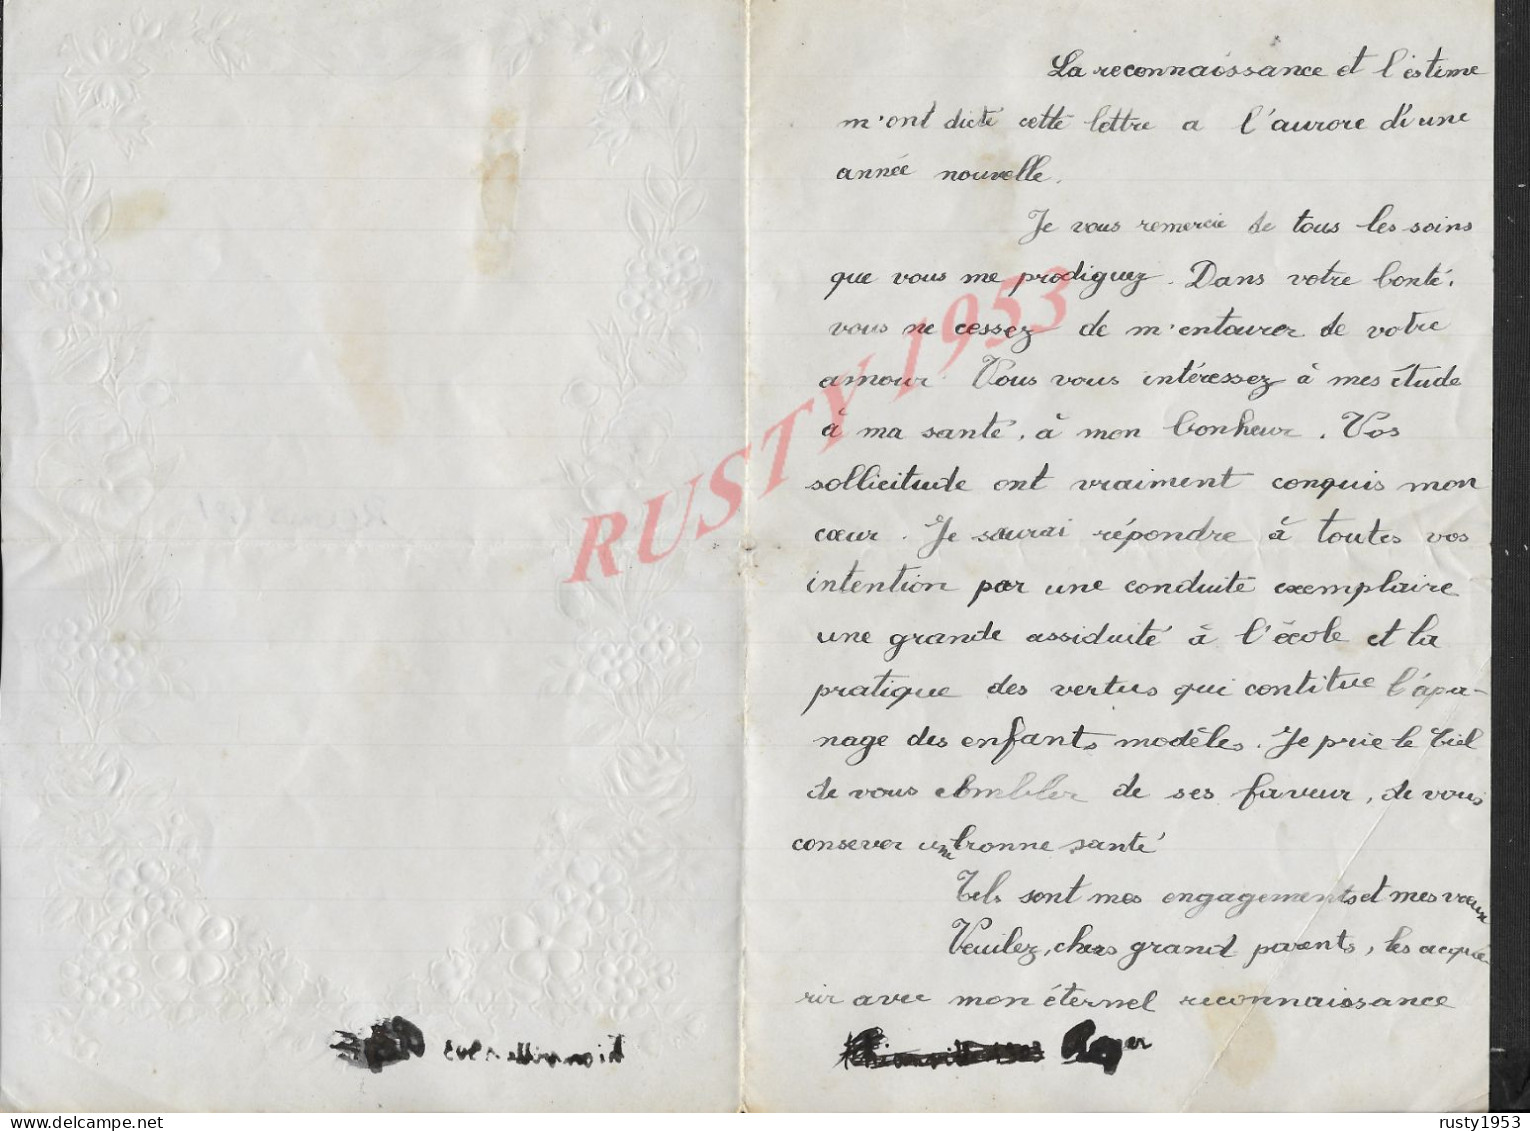 La reconnaissance et l'éstime
m'ont dicté cette lettre a l'aurore d'une
année nouvelle.
Je vous remercie de tous les soins
que vous me prodiguez. Dans votre bonté,
vous ne cessez de m'entourer de votre
amour. Vous vous intéressez à mes étude
à ma santé, à mon bonheur. Vos
sollicitude ont vraiment conquis mon
cœur. Je saurai répondre à toutes vos
intention par une conduite exemplaire
une grande assiduité à l'école et la
pratique des vertus qui contitue l'apa-
nage des enfants modèles. Je prie le Ciel
de vous combler de ses faveur, de vous
consever une bonne santé
Tels sont mes engagements et mes vœux
Veuilez, chers grand parents, les acqué-
rir avec mon éternel reconnaissance
thionville 1903
Roger
thionville 1903
RUSTY 1953
rusty1953